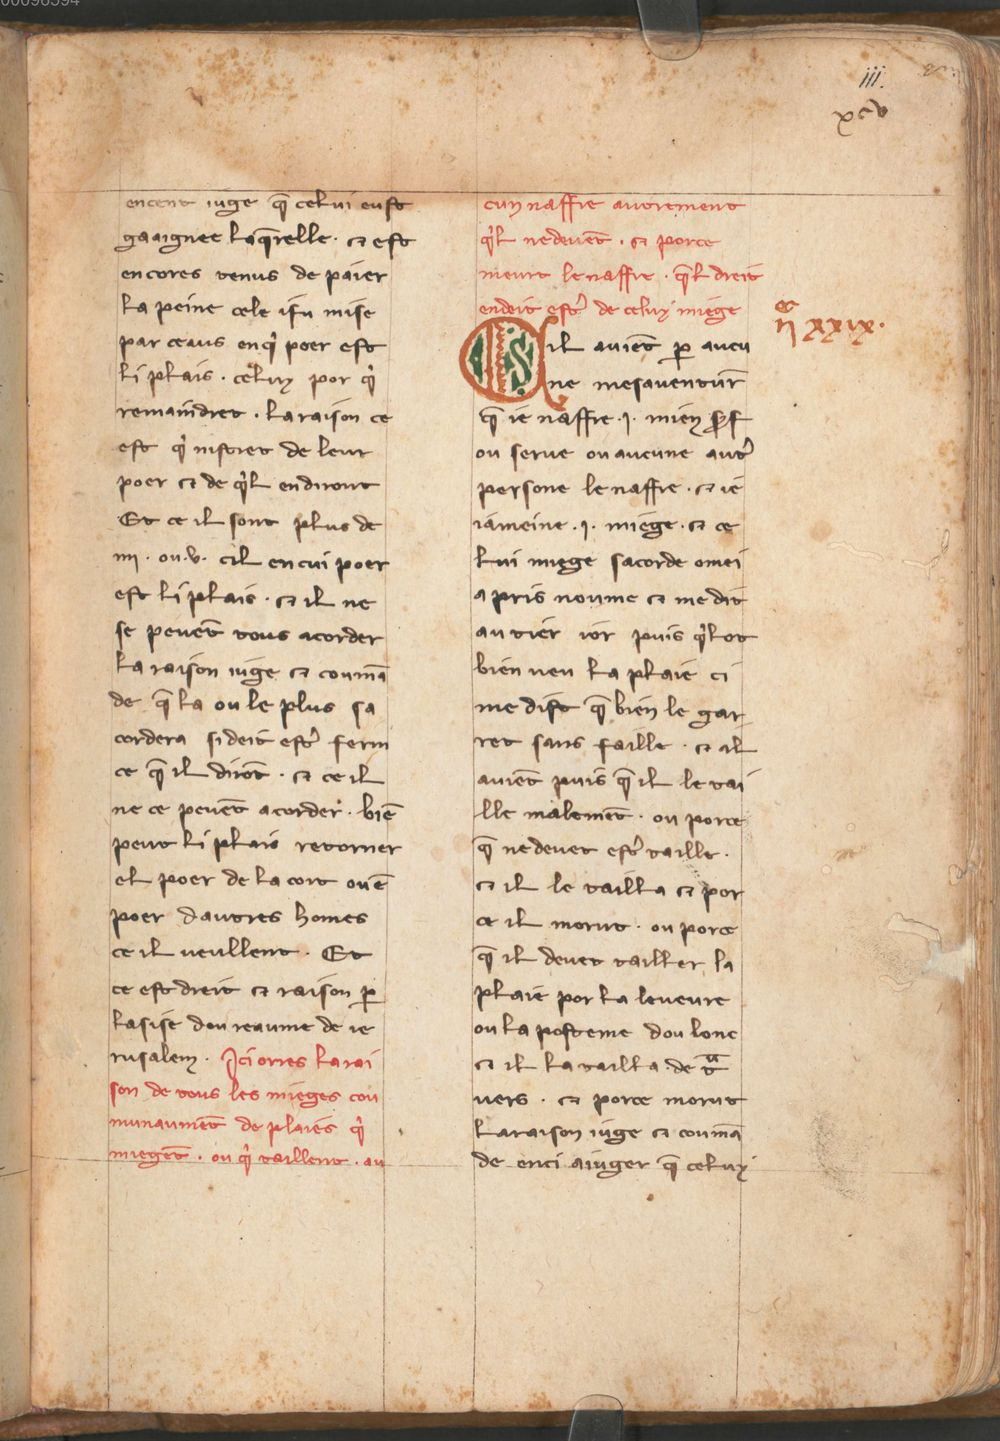 00096594
iii.
xcv
encent iuge q̄ celui euft
gaaignee laq̄relle · ⁊ eft
encores tenus de paier
la peine cele ifu mise
par ceaus enq̇ poer eft
li plais · celuy por q̇
remaindret · la raison ce
eft q̇ niftret de leur
poer ⁊ de q̇l endiront
Et ce il sont plus de
iiii · ou · v · cil en cui poer
eft li plais · ⁊ il ne
se peuēt tous acorder
la raison iuge ⁊ coumā
de q̄ la ou le plus sa
cordera si deit eftˀ ferm
ce q̄ il dirōt · ⁊ ce il
ne ce peuēt acorder · biē
peut li plais retorner
el poer de la cort ou ē
poer dautres homes
ce il ueullent · Et
ce eft dreit ⁊ raison ꝑ
lasise dou reaume de ie
rusalem · Ici orres la rai
son de tous les mieges cou
munaumēt de plaies q̇
miegēt · ou q̇ taillent · au
cun naffre autrement
q̇l ne deuēt · ⁊ porce
meurt le naffre · q̄l dreit
endeit eftˀ de celuy miege
c̄ xxix ·
S il auiēt ꝑ aucu
ne mesauentur̄
q̄ ie naffre · i · mien s̄f
ou serue ou aucune autˀ
persone le naffre · ⁊ ie
iameine · i · miege · ⁊ ce
lui miege sacorde o mei
a pris noume ⁊ me dit
au tier ior puis q̇l ot
bien ueu la plaie ci
me dift q̄ bien le gar
ret sans faille · ⁊ il
auiēt puis q̄ il le tai
lle malemēt · ou porce
q̄ ne deuet eftˀ taille ·
⁊ il le tailla ⁊ por
ce il morut · ou porce
q̄ il deuet tailler la
plaie por la leueure
ou la pofteme dou lonc
⁊ il la tailla de tᵃ
uers · ⁊ porce morut
la raison iuge ⁊ coumā
de enci a iuger q̄ celuy